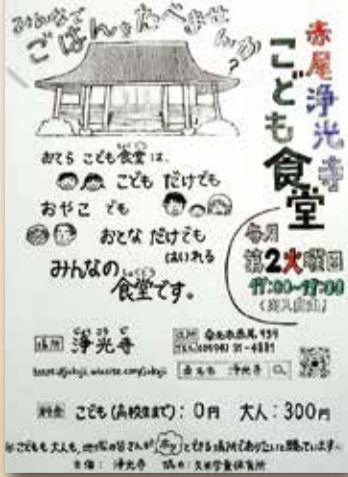 みんなで
ごはんをたべませんか?
赤尾浄光寺
こども食堂
おてらこども食堂は、
こども だけでも
おやこ でも
おとな だけでも
はいれる
みんなの
しょくどう
食堂です。
毎月
第2火曜日
17:00-19:00
場所 じょうこうじ
浄光寺
住所
桑名市 浄光寺
料金 こども(高校生まで):0円 大人:300円
※こどもも大人も、地域の皆さんがホッとできる場所でありたいと願っています。
主催:浄光寺 協力: